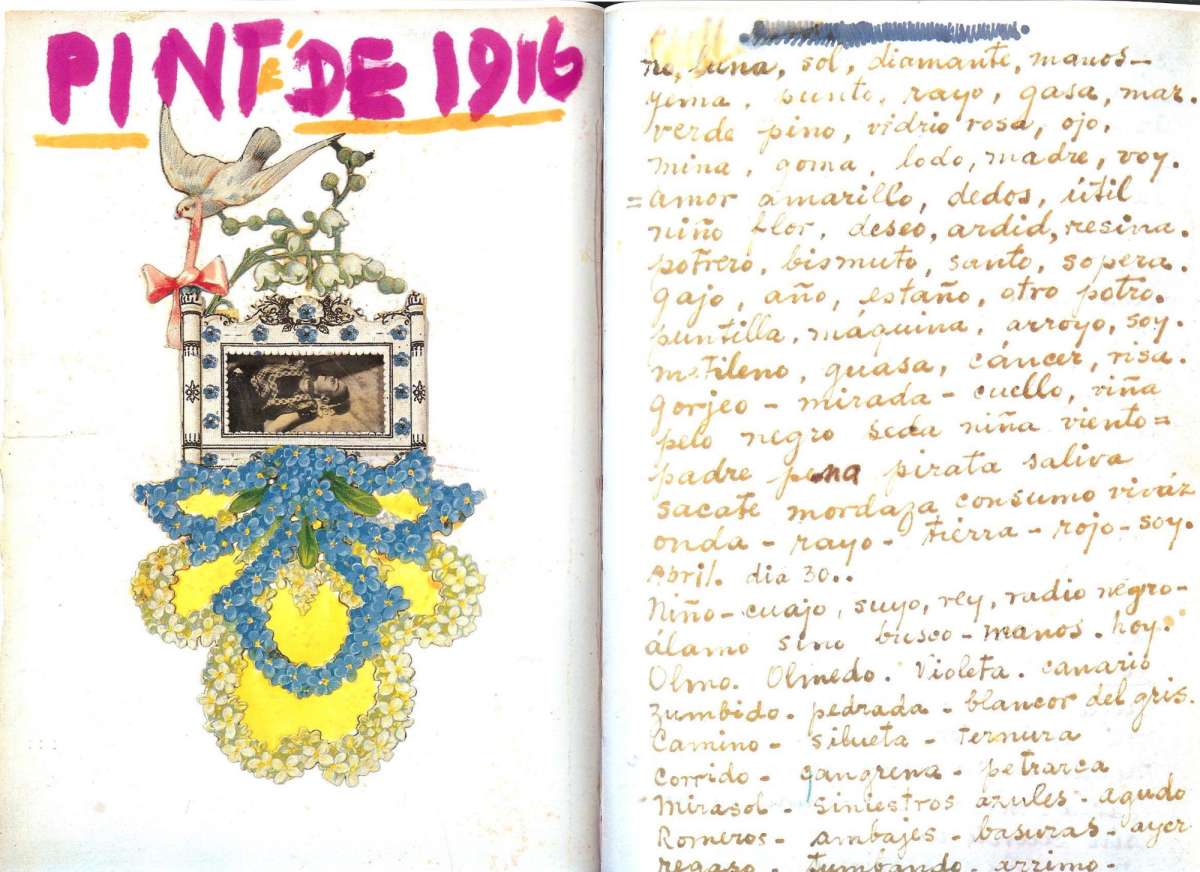 PINTÉ DE 1916
no, luna, sol, diamante, manos-
yema, punto, rayo, gasa, mar.
verde pino, vidrio rosa, ojo,
mina, goma, lodo, madre, voy.
=amor amarillo, dedos, útil
niño flor, deseo, ardid, resina.
potrero, bismuto, santo, sopera.
gajo, año, estaño, otro potro.
puntilla, máquina, arroyo, soy.
metileno, guasa, cáncer, risa.
gorjeo - mirada - cuello, viña
pelo negro seda niña viento=
padre pena pirata saliva
sacate mordaza consumo viváz
onda - rayo - tierra - rojo - soy.
Abril. dia 30..
Niño - cuajo, suyo, rey, radio negro -
álamo sino busco - manos. hoy.
Olmo. Olmedo. Violeta. canario
zumbido - pedrada - blancor del gris.
Camino - silueta - ternura
corrido - gangrena - petrarca
Mirasol - siniestros azules - agudo
Romeros - ambajes - basuras - ayer
regazo - tumbando - arrimo -